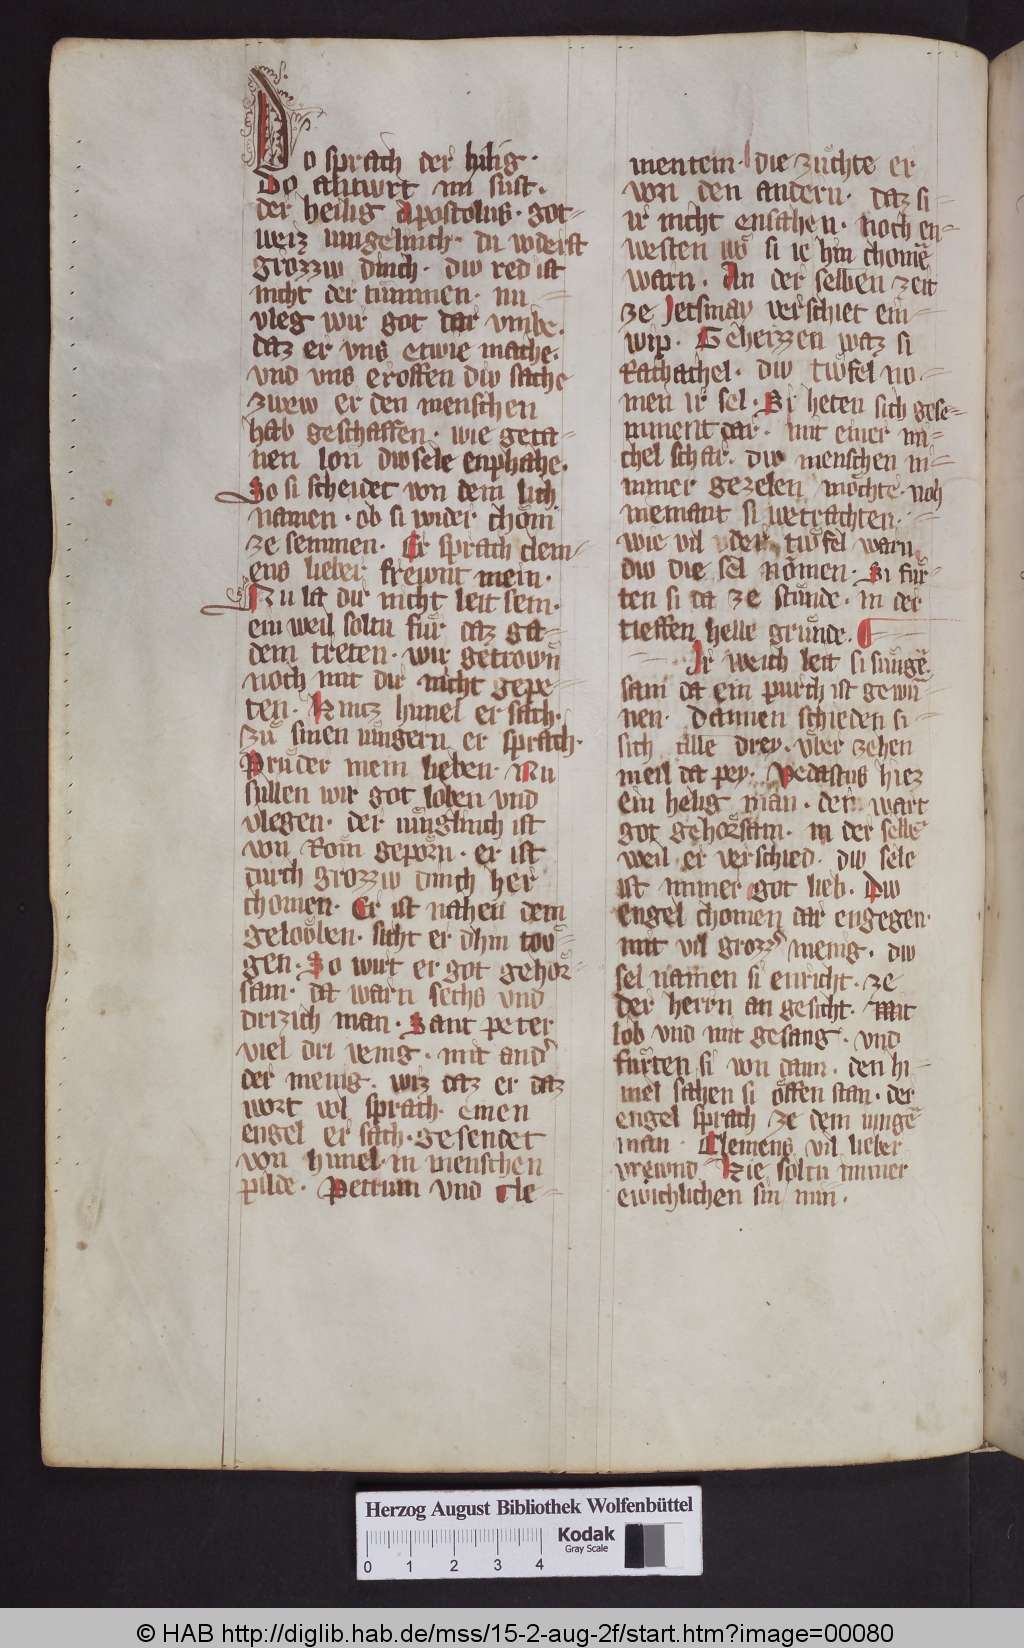 Do sprach der hilig·
Do antwrt im sust·
der heilig Apostolus· got
weiz iungelinch· du wderst
grozziv dinch· div red ist
nicht der tummen· nu
vleg wir got dar vmbe·
daz er vns etwie mache·
vnd vns eroffen div sache
zwev er den menschen
hab geschaffen· wie geta-
nen lon div sele enphahe·
So si scheidet von dem lich
namen· ob si wider chom
ze semmen· Er sprach clem-
ens lieber frewnt mein·
Nu la dir nicht leit sein·
ein weil soltu fuͤr daz ga-
dem treten· wir getrowñ
noch mit dir nicht gepe-
ten· Hincz himel er sach·
zuͦ sinen iungern er sprach·
Pruͤder mein lieben· Nu
sullen wir got loben vnd
vlegen· der iunglinch ist
von Rom geporn· er ist
durch grozziv dinch her
chomen· Er ist nahen dem
gelouben· sicht er dhin tov-
gen· So wirt er got gehor-
sam· da warn sechs vnd
drizich man· Sant peter
viel dri venig· mit and
der menig· wiz daz er daz
wort vol sprach· einen
engel er sach· gesendet
von himel· in menschen
pilde· Petrum vnd Cle-
mentem· die zuchte er
von den andern· daz si
ir nicht ensahen· noch en-
westen wo si ie hin chomē
warn· An der selben zeit
ze Jetsmay verschiet ein
wip· Geheizzen waz si
Rachachel· div tiufel no-
men ir sel· Si heten sich gese-
mment dar· mit einer mi-
chel schar· div menschen in-
mmer gezelen mochte· noch
niemant si betrachten·
wie vil der tiufel warn
div die sel nomen· Si fuͤr-
ten si da ze stunde· in der
tieffen helle grunde·
Ir weich leit si sungē
sam da ein purch ist gewū-
nen· Dannen schieden si
sich alle drey· vber zehen
meil da pey· Vedastus hiez
ein helig man· der wart
got gehorsam· in der selbē
weil er verschied· div sele
ist immer got lieb· Div
engel chomen dar engegen·
mit vil grozz menig· div
sel namen si enricht· ze
der herrn an gesicht· Mit
lob vnd mit gesang· vnd
fuͤrten si von dann· den hi-
mel sahen si offen stan· der
engel sprach ze dem iungē
man· Clemens vil lieber
vrewnd Hie soltu immer
ewichlichen sin min·
Herzog August Bibliothek Wolfenbüttel
0 1 2 3 4
Kodak
Gray Scale
© HAB http://diglib.hab.de/mss/15-2-aug-2f/start.htm?image=00080